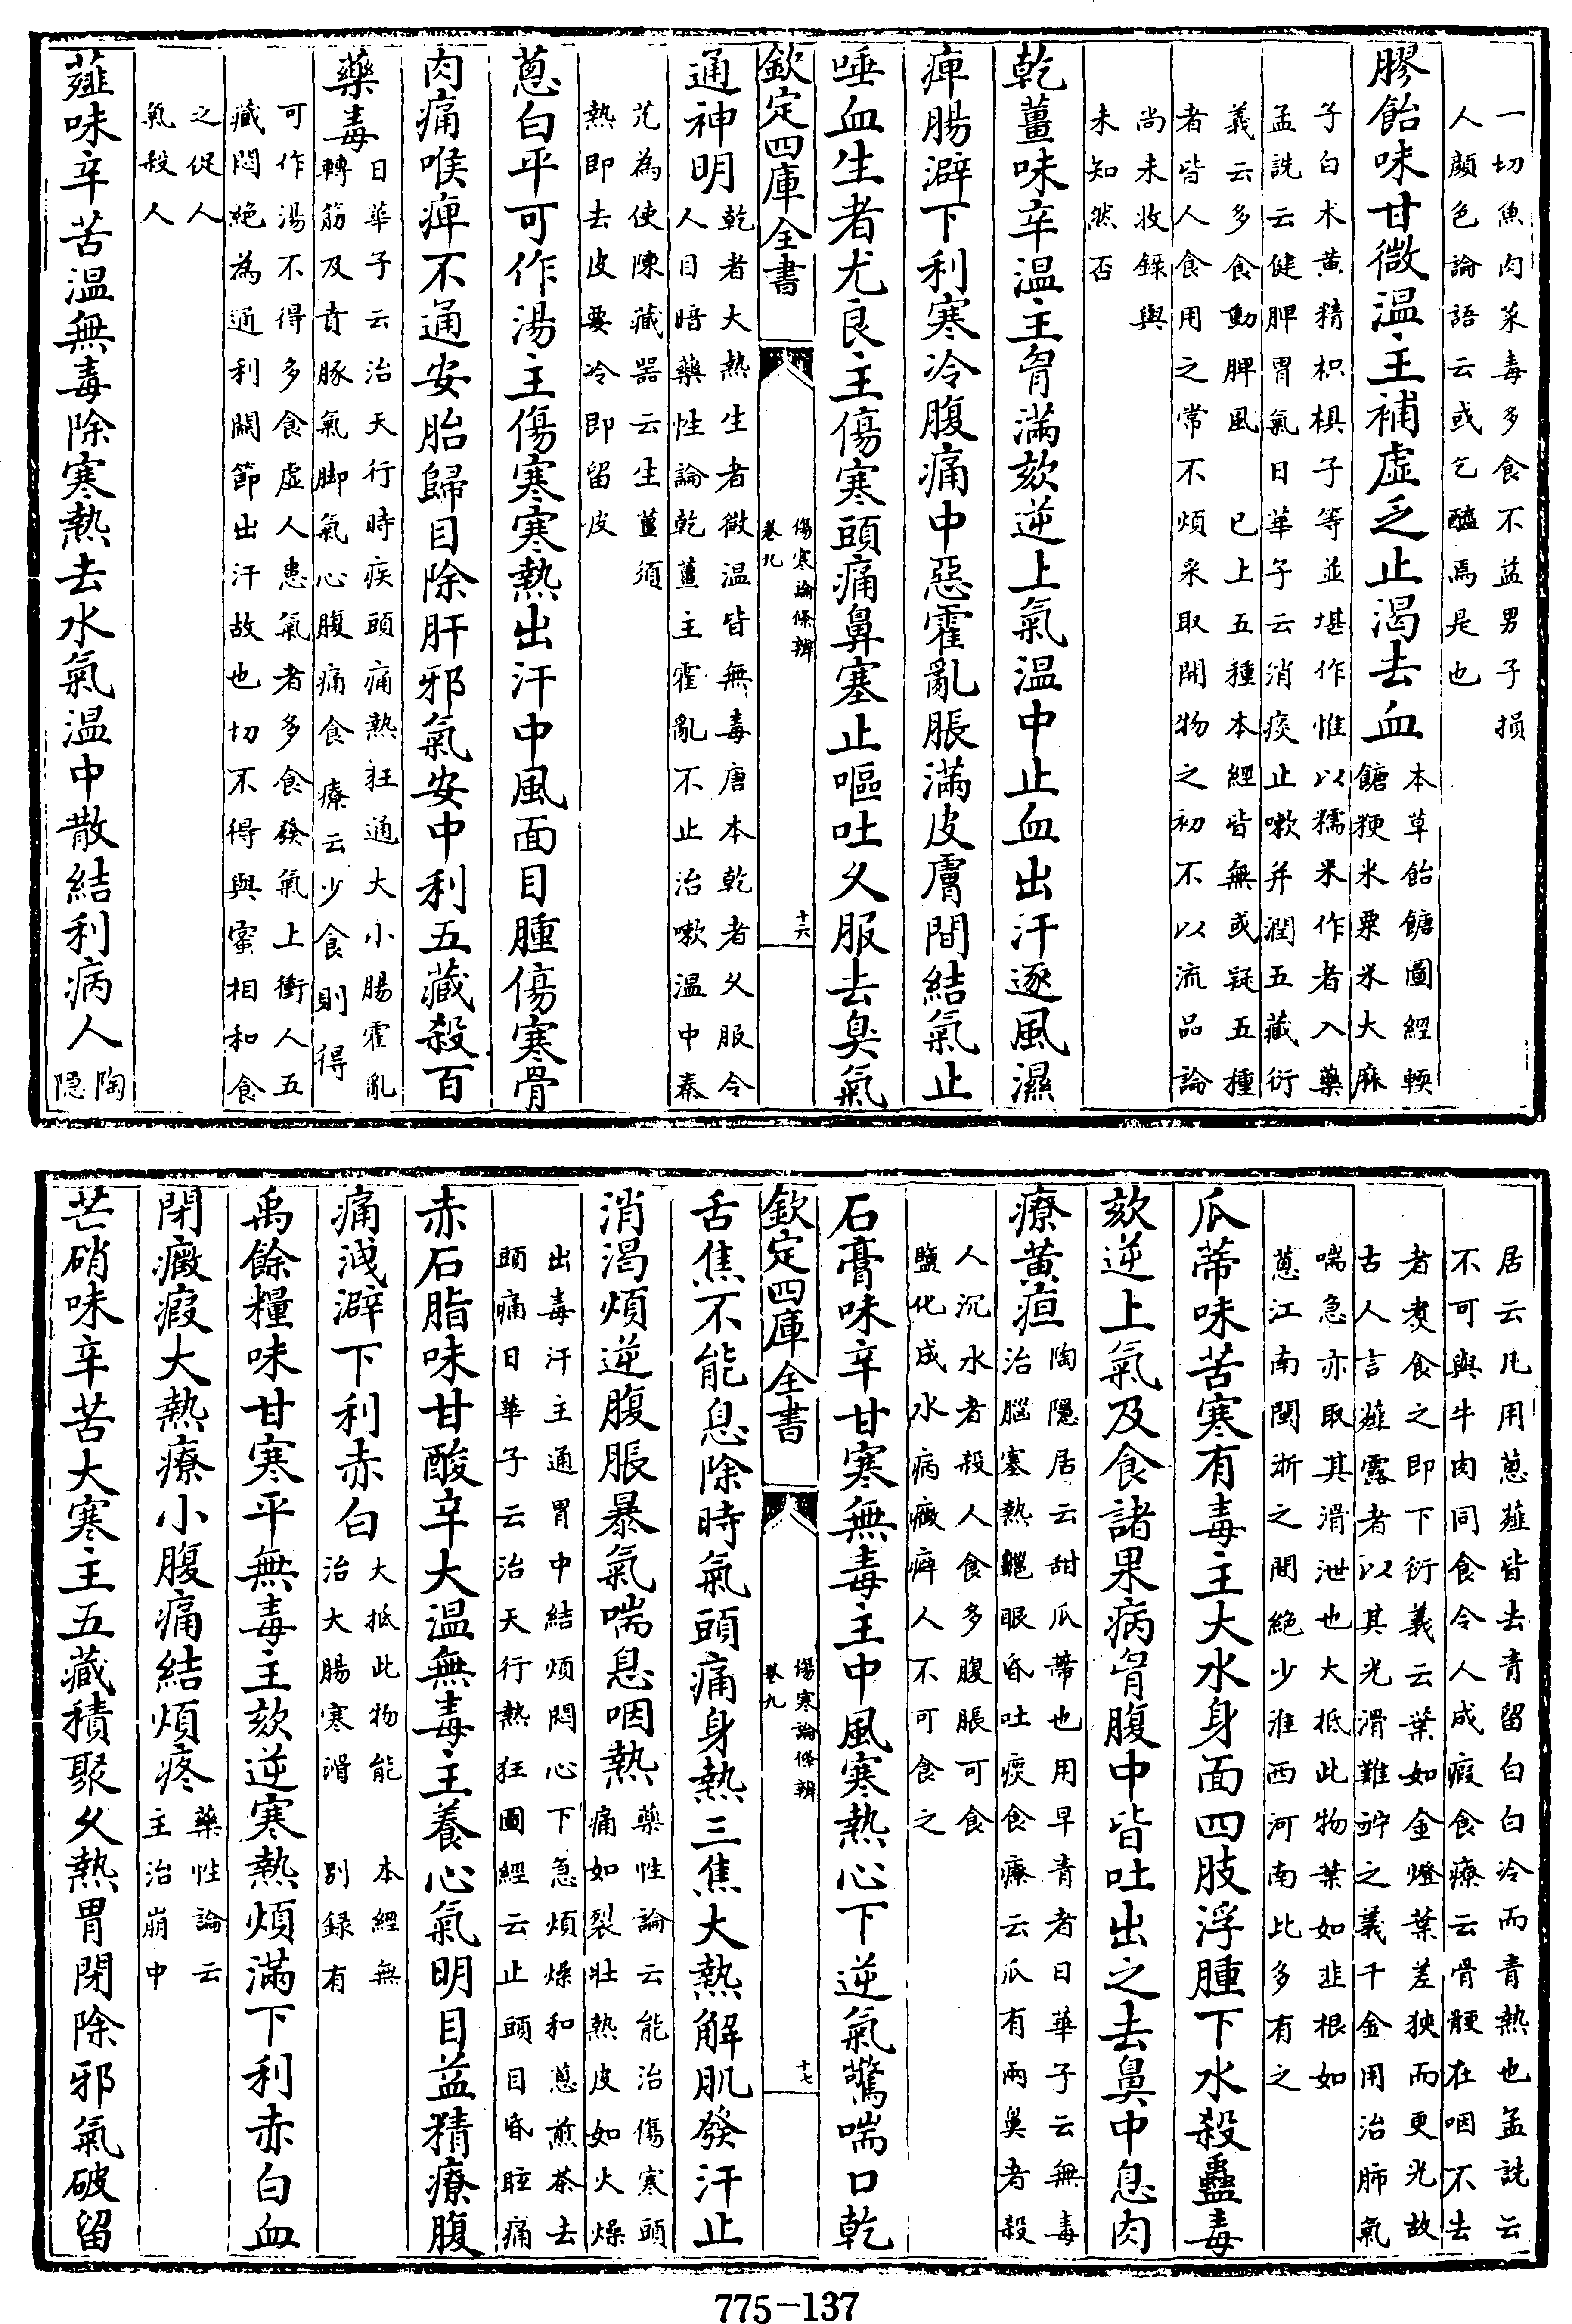 一切魚肉菜毒多食不益男子損
人顏色論語云或乞醯焉是也
膠飴味甘微温主補虛乏止渴去血本草飴餹圖經輭
餹粳米粟米大麻
子白朮黃精枳椇子等並堪作惟以糯米作者入藥
孟詵云健脾胃氣日華子云消痰止嗽并潤五藏衍
義云多食動脾風 已上五種本經皆無或疑五種
者皆人食用之常不煩采取開物之初不以流品論
尚未收錄與
未知然否
乾薑味辛温主胷滿欬逆上氣温中止血出汗逐風濕
痺腸澼下利寒冷腹痛中惡霍亂脹滿皮膚間結氣止
唾血生者尤良主傷寒頭痛鼻塞止嘔吐乆服去臭氣
欽定四庫全書 傷寒論條辨 卷九 十六
通神明乾者大熱生者微温皆無毒唐本乾者乆服令
人目暗藥性論乾薑主霍亂不止治嗽温中秦
艽為使陳藏器云生薑須
熱即去皮要冷即留皮
蔥白平可作湯主傷寒寒熱出汗中風面目腫傷寒骨
肉痛喉痺不通安胎歸目除肝邪氣安中利五藏殺百
藥毒日華子云治天行時疾頭痛熱狂通大小腸霍亂
轉筋及賁豚氣脚氣心腹痛食療云少食則得
可作湯不得多食虛人患氣者多食發氣上衝人五
藏悶絕為通利關節出汗故也切不得與蜜相和食
之促人
氣殺人
薤味辛苦温無毒除寒熱去水氣温中散結利病人陶
隐
居云凡用蔥薤皆去青留白白冷而青熱也孟詵云
不可與牛肉同食令人成瘕食療云骨骾在咽不去
者煑食之即下衍義云葉如金燈葉差狹而更光故
古人言薤露者以其光滑難竚之義千金用治肺氣
喘急亦取其滑泄也大抵此物葉如韭根如
蔥江南閩浙之間絕少淮西河南北多有之
瓜蒂味苦寒有毒主大水身面四肢浮腫下水殺蠱毒
欬逆上氣及食諸果病胷腹中皆吐出之去鼻中息肉
療黃疸陶隱居云甜瓜蒂也用早青者日華子云無毒
治腦塞熱齆眼昏吐痰食療云瓜有兩鼻者殺
人沉水者殺人食多腹脹可食
鹽化成水病癥癖人不可食之
石膏味辛甘寒無毒主中風寒熱心下逆氣驚喘口乾
欽定四庫全書 傷寒論條辨 卷九 十七
舌焦不能息除時氣頭痛身熱三焦大熱解肌發汗止
消渴煩逆腹脹暴氣喘息咽熱藥性論云能治傷寒頭
痛如裂壯熱皮如火燥
出毒汗主通胃中結煩悶心下急煩燥和蔥煎茶去
頭痛日華子云治天行熱狂圖經云止頭目昏眩痛
赤石脂味甘酸辛大温無毒主養心氣明目益精療腹
痛洩澼下利赤白大抵此物能 本經無
治大腸寒滑 别録有
禹餘糧味甘寒平無毒主欬逆寒熱煩滿下利赤白血
閉癥瘕大熱療小腹痛結煩疼藥性論云
主治崩中
芒硝味辛苦大寒主五藏積聚乆熱胃閉除邪氣破留
775-137